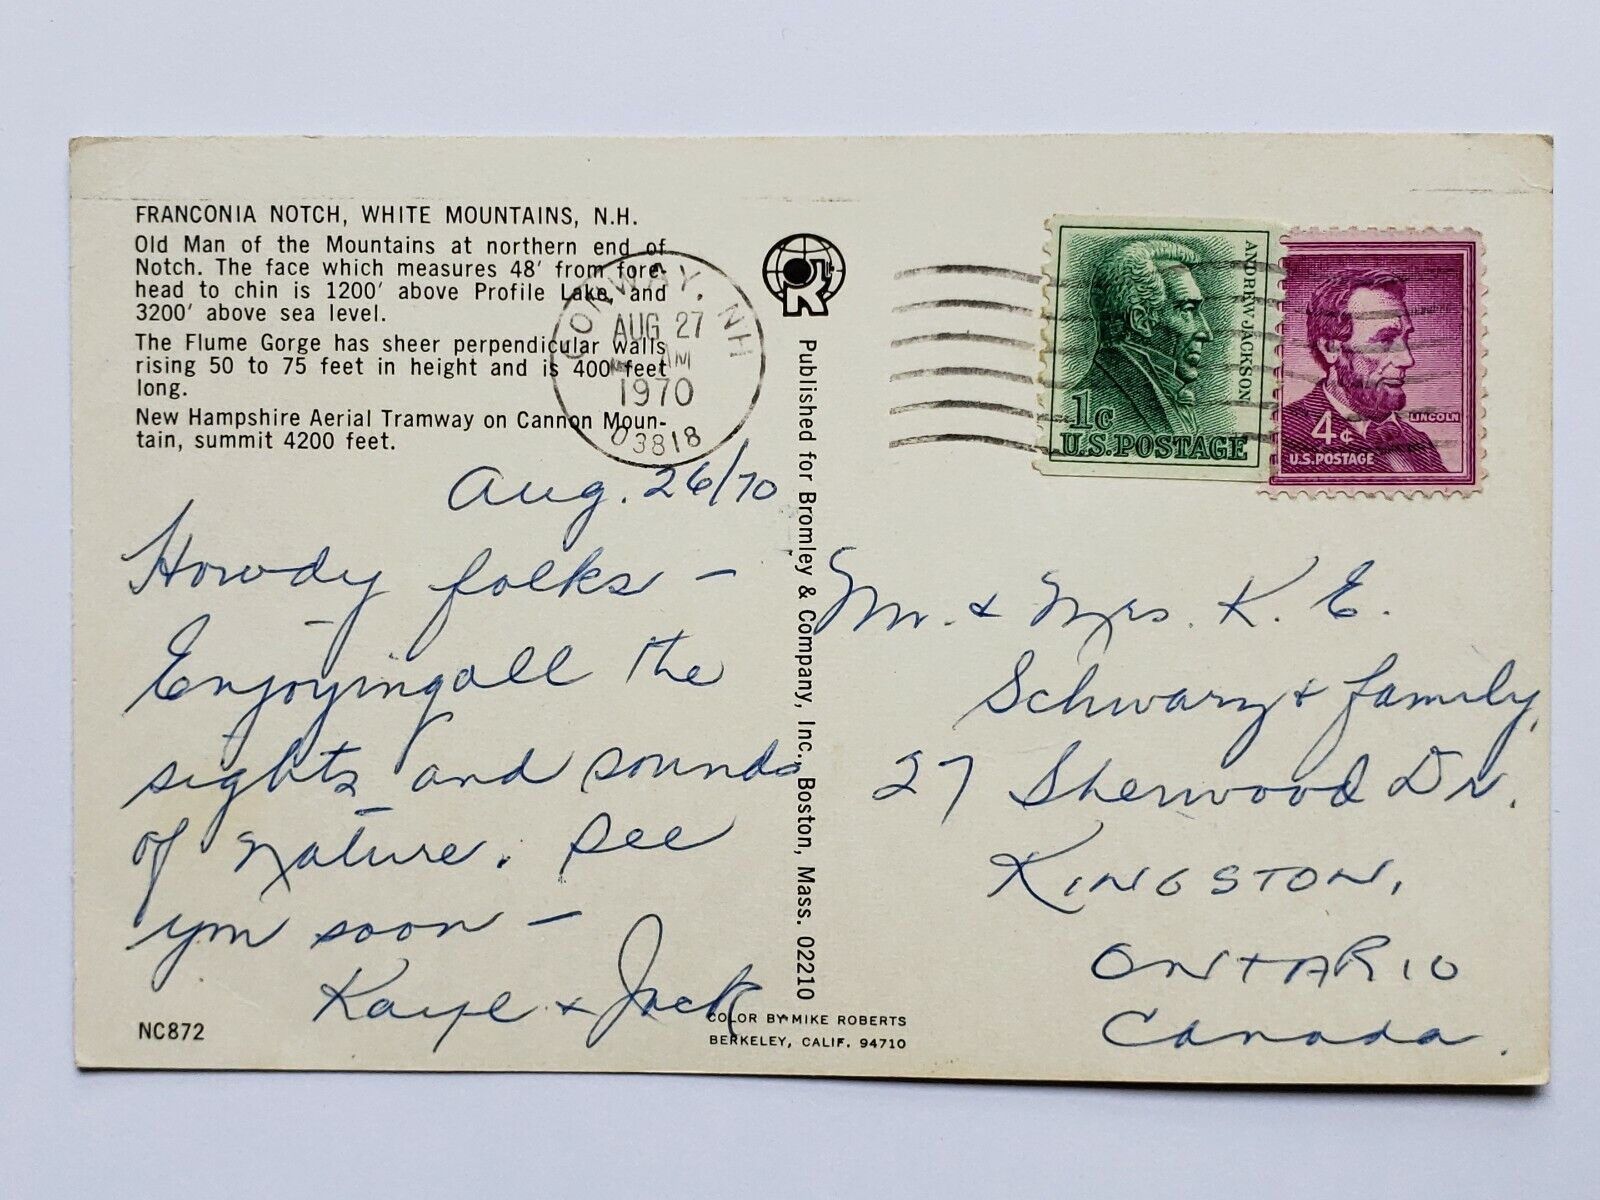 FRANCONIA NOTCH, WHITE MOUNTAINS, N.H.
Old Man of the Mountains at northern end of
Notch. The face which measures 48' from fore-
head to chin is 1200' above Profile Lake, and
3200' above sea level.
The Flume Gorge has sheer perpendicular walls
rising 50 to 75 feet in height and is 400 feet
long.
New Hampshire Aerial Tramway on Cannon Moun-
tain, summit 4200 feet.
CONWAY, NH
AUG 27
AM
1970
03818
Aug. 26/70
Howdy folks –
Enjoying all the
sights and sounds
of nature. See
you soon –
Kaye & Jack
NC872
R
Published for Bromley & Company, Inc., Boston, Mass. 02210
COLOR BY MIKE ROBERTS
BERKELEY, CALIF. 94710
ANDREW JACKSON
1c
U.S. POSTAGE
LINCOLN
4c
U.S. POSTAGE
Mr. & Mrs. K. E.
Schwarz & family,
27 Sherwood Dr.
KINGSTON,
ONTARIO
Canada.